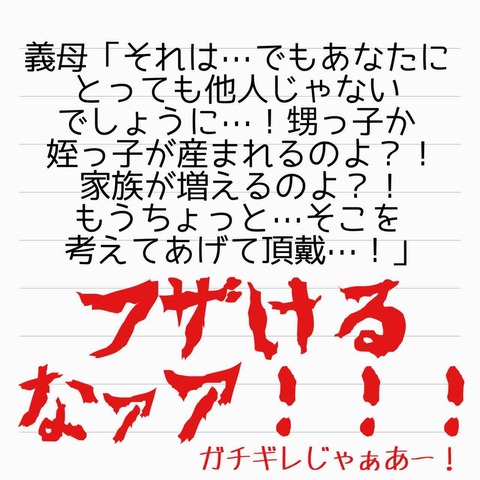 義母「それは…でもあなたに
とっても他人じゃない
でしょうに…！甥っ子か
姪っ子が産まれるのよ？！
家族が増えるのよ？！
もうちょっと…そこを
考えてあげて頂戴…！」
フザける
なァア！！！
ガチギレじゃぁあー！